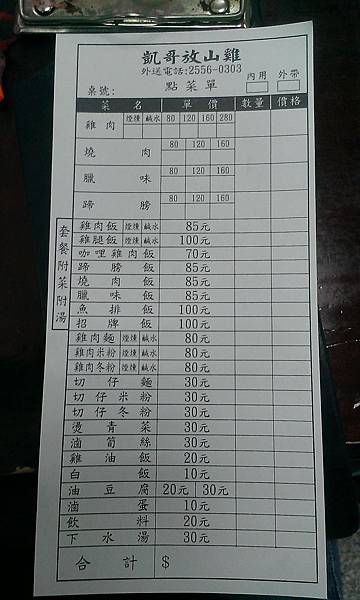 凱哥放山雞
外送電話:2556-0303
桌號: 點菜單 內用 外帶
菜名 單價 數量 價格
雞肉 煙燻 鹹水 80 120 160 280
燒肉 80 120 160
臘味 80 120 160
蹄膀 80 120 160
套餐附菜附湯
雞肉飯 煙燻 鹹水 85元
雞腿飯 煙燻 鹹水 100元
咖哩雞肉飯 70元
蹄膀飯 85元
燒肉飯 85元
臘味飯 85元
魚排飯 100元
招牌飯 100元
雞肉麵 煙燻 鹹水 80元
雞肉米粉 煙燻 鹹水 80元
雞肉冬粉 煙燻 鹹水 80元
切仔麵 30元
切仔米粉 30元
切仔冬粉 30元
燙青菜 30元
滷筍絲 30元
雞油飯 20元
白飯 10元
油豆腐 20元 30元
滷蛋 10元
飲料 20元
下水湯 30元
合計 $